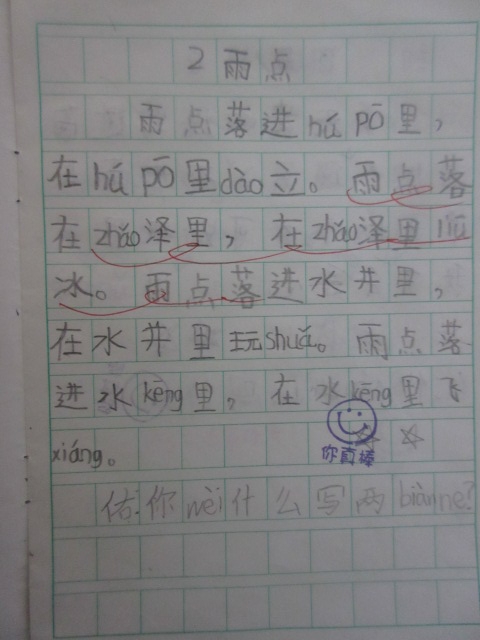 2 雨点
雨点落进hú pō里，
在hú pō里dào立。雨点落
在zhǎo泽里，在zhǎo泽里liū
冰。雨点落进水井里，
在水井里玩shuǎ。雨点落
进水kēng里，在水kēng里飞
xiáng。
你真棒
佑.你wèi什么写两biàn ne?